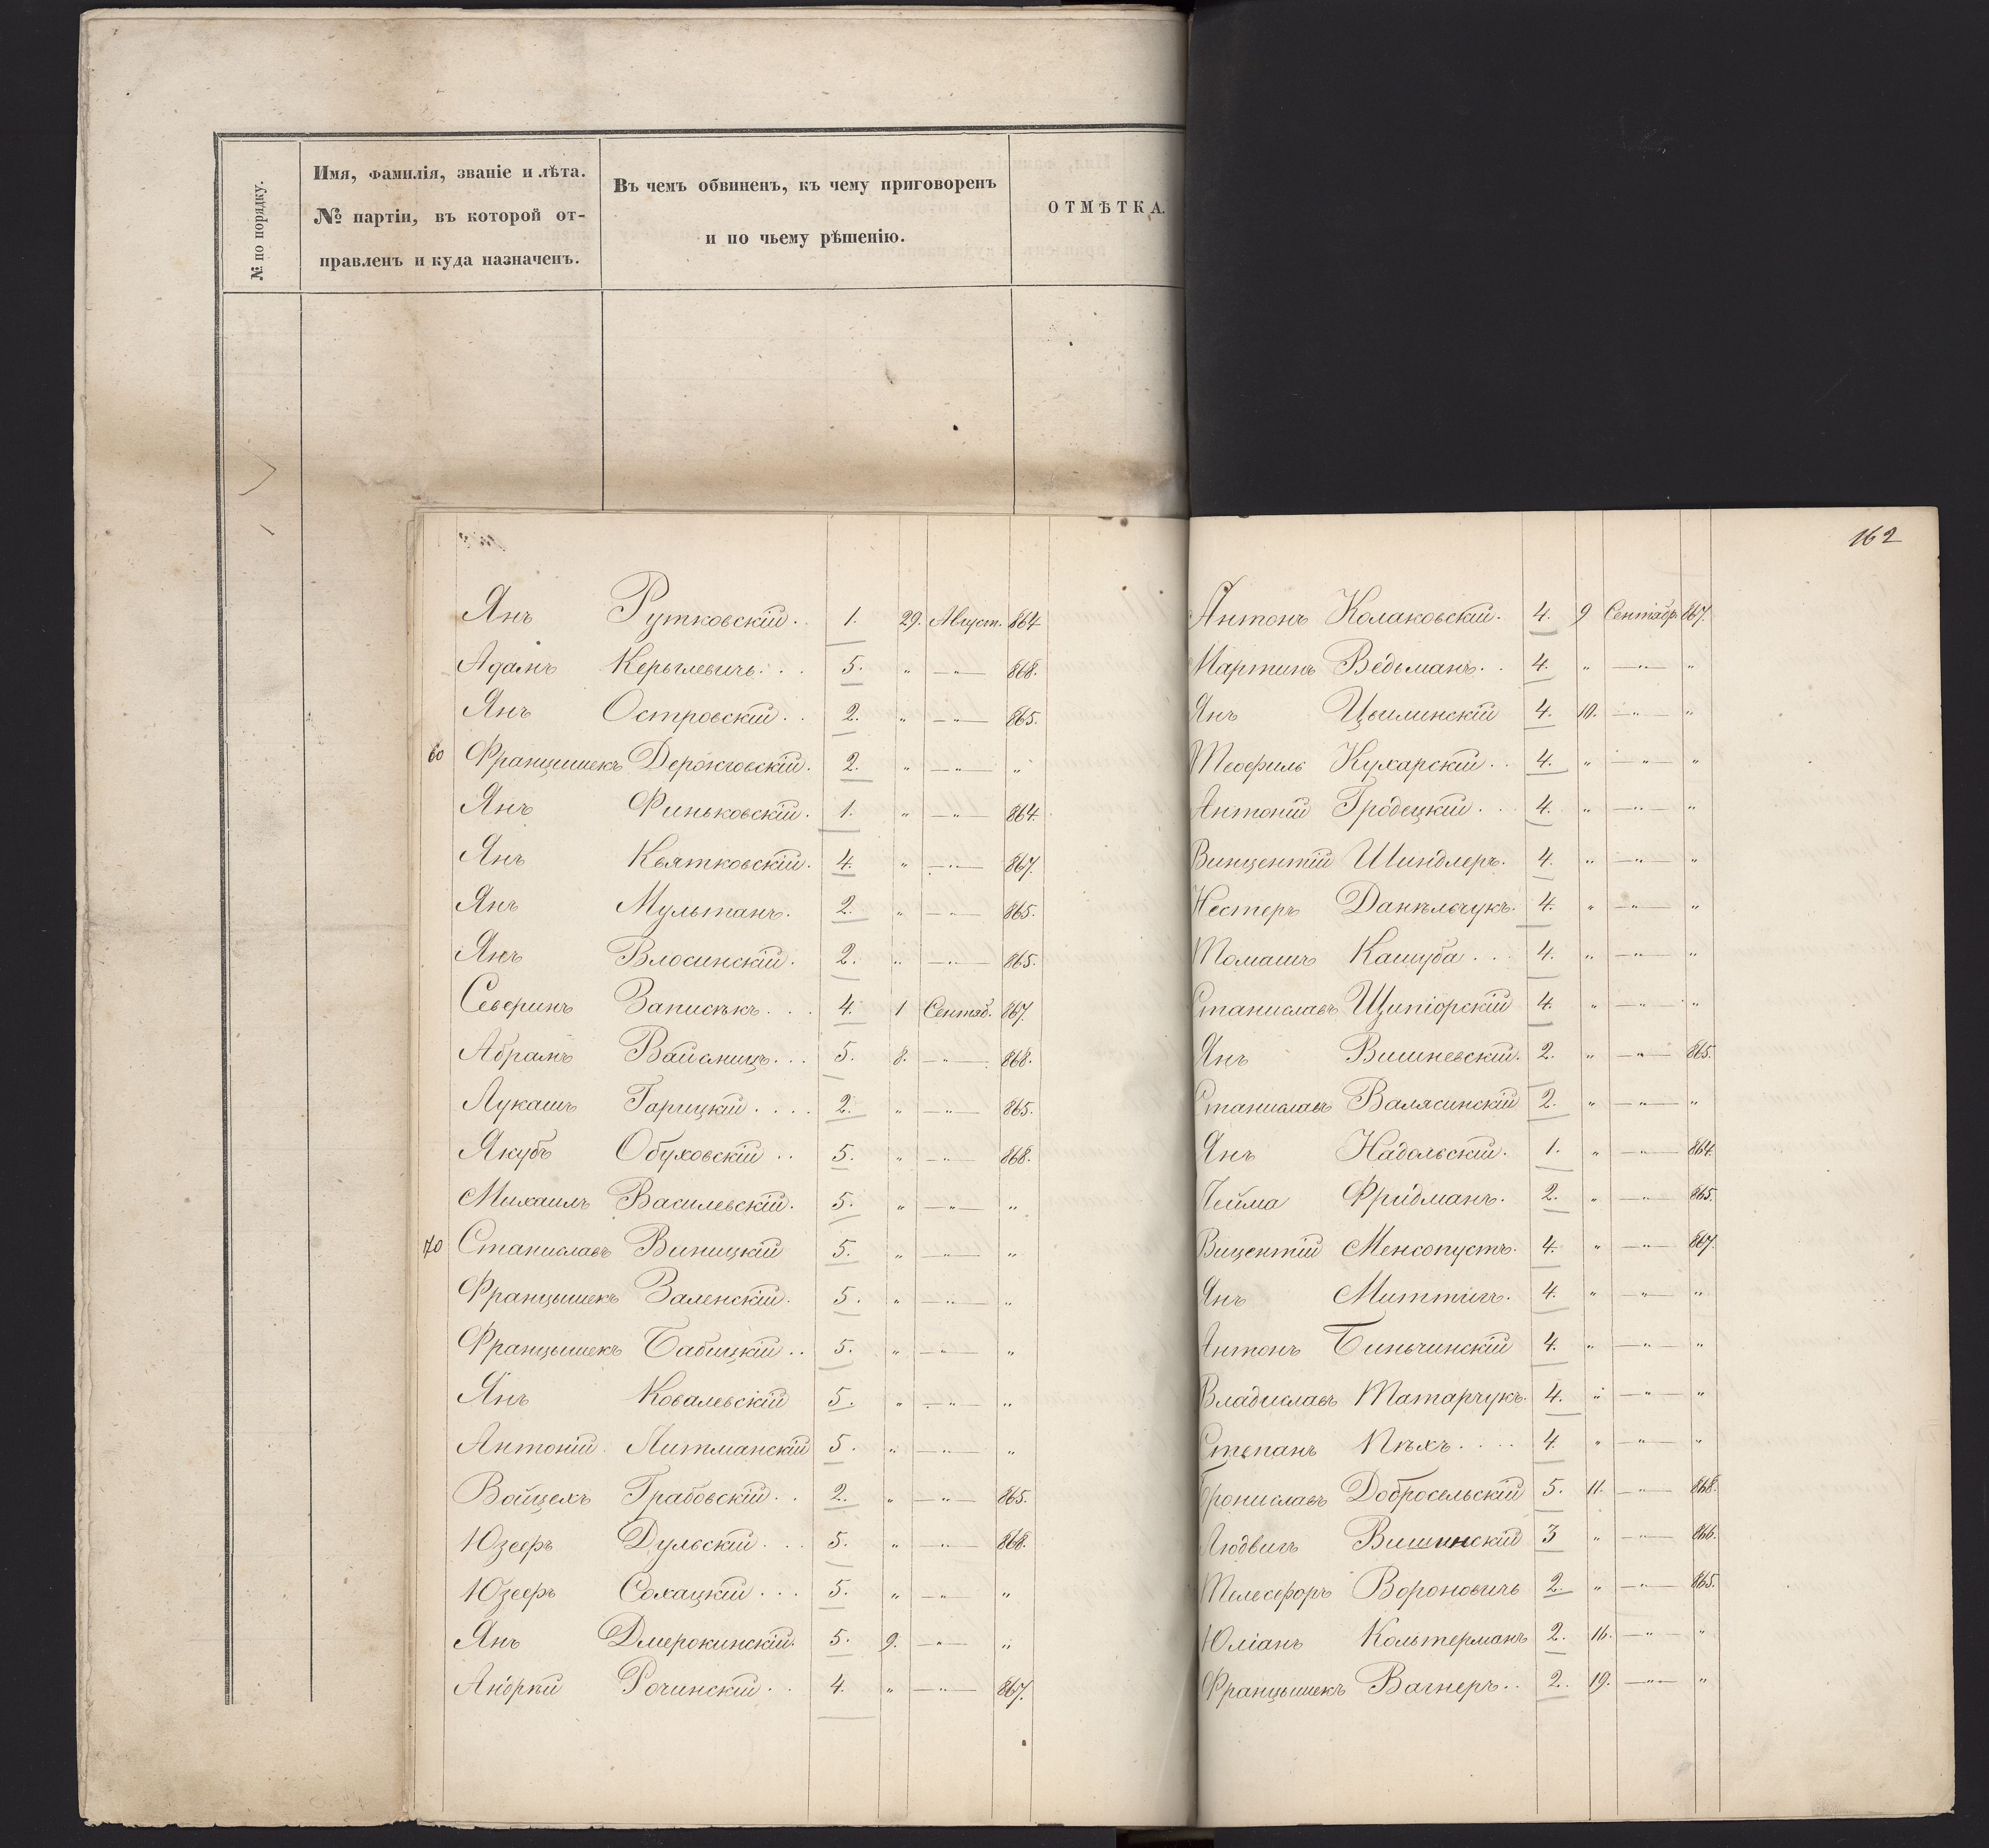 № по порядку.
Имя, фамилія, званіе и лѣта.
№ партіи, въ которой от-
правленъ и куда назначенъ.
Въ чемъ обвиненъ, къ чему приговоренъ
и по чьему рѣшенію.
ОТМѢТКА.
Янъ Рутковскій. 1. 29. Август. 864
Адамъ Керылевичь. . . 5. " —"— 868.
Янъ Островскій. . 2. " —"— 865.
60 Францишекъ Держговскій. 2. " —"— "
Янъ Финьковскій. 1. " —"— 864.
Янъ Квятковскій. 4. " —"— 867.
Янъ Мультанъ. 2. " —"— 865.
Янъ Влосинскій. 2. " —"— 865.
Северинъ Записѣкъ. . . 4. 1 Сентяб. 867.
Абрамъ Вайсницъ. . . 5. 8. —"— 868.
Лукашъ Гарицкій . . . . 2. " —"— 865.
Якубъ Обуховскій . . 5. " —"— 868.
Михаилъ Василевскій. 5. " —"— "
70 Станиславъ Виницкій 5. " —"— "
Францышекъ Заленскій. 5. " —"— "
Францышекъ Бабицкій . . 5. " —"— "
Янъ Ковалевскій 5. " —"— "
Антоній Литманскій 5. " —"— "
Войцехъ Грабовскій. . 2. " —"— 865.
Юзефъ Дульскій. . . 5. " —"— 868.
Юзефъ Сохацкій . . . 5. " —"— "
Янъ 5. 9. —"— "
Андрей Рочинскій. . 4. " —"— 867.
162
Антонъ Колаковскій. 4. 9 Сентябр. 867.
Мартинъ Ведьманъ. . 4. " —"— "
Янъ Цылинскій 4. 10. —"— "
Теофиль Кухарскій. . 4. " —"— "
Антоній Гродецкій . . 4. " —"— "
Винцентій Шиндлеръ. 4. " —"— "
Нестеръ Данѣльчукъ. 4. " —"— "
Томашъ Кашуба . . . 4. " —"— "
Станиславъ Щипіорскій 4. " —"— "
Янъ Вишневскій. 2. " —"— 865.
Станиславъ Валясинскій 2. " —"— "
Янъ Надольскій. 1. " —"— 864.
Фридманъ. 2. " —"— 865.
Вицентій Менсопустъ. 4. " —"— 867.
Янъ Миттигъ. 4. " —"— "
Антонъ Биньчинскій 4. " —"— "
Владиславъ Татарчукъ. 4. " —"— "
Степанъ Пѣхъ. . . . 4. " —"— "
Брониславъ Добросельскій 5. 11. —"— 868.
Людвигъ Вишинскій 3 " —"— 866.
Телесфоръ Вороновичь 2. " —"— 865.
Юліанъ Кольтерманъ 2. 16. —"— "
Францышекъ Вагнеръ. . 2. 19. —"— "